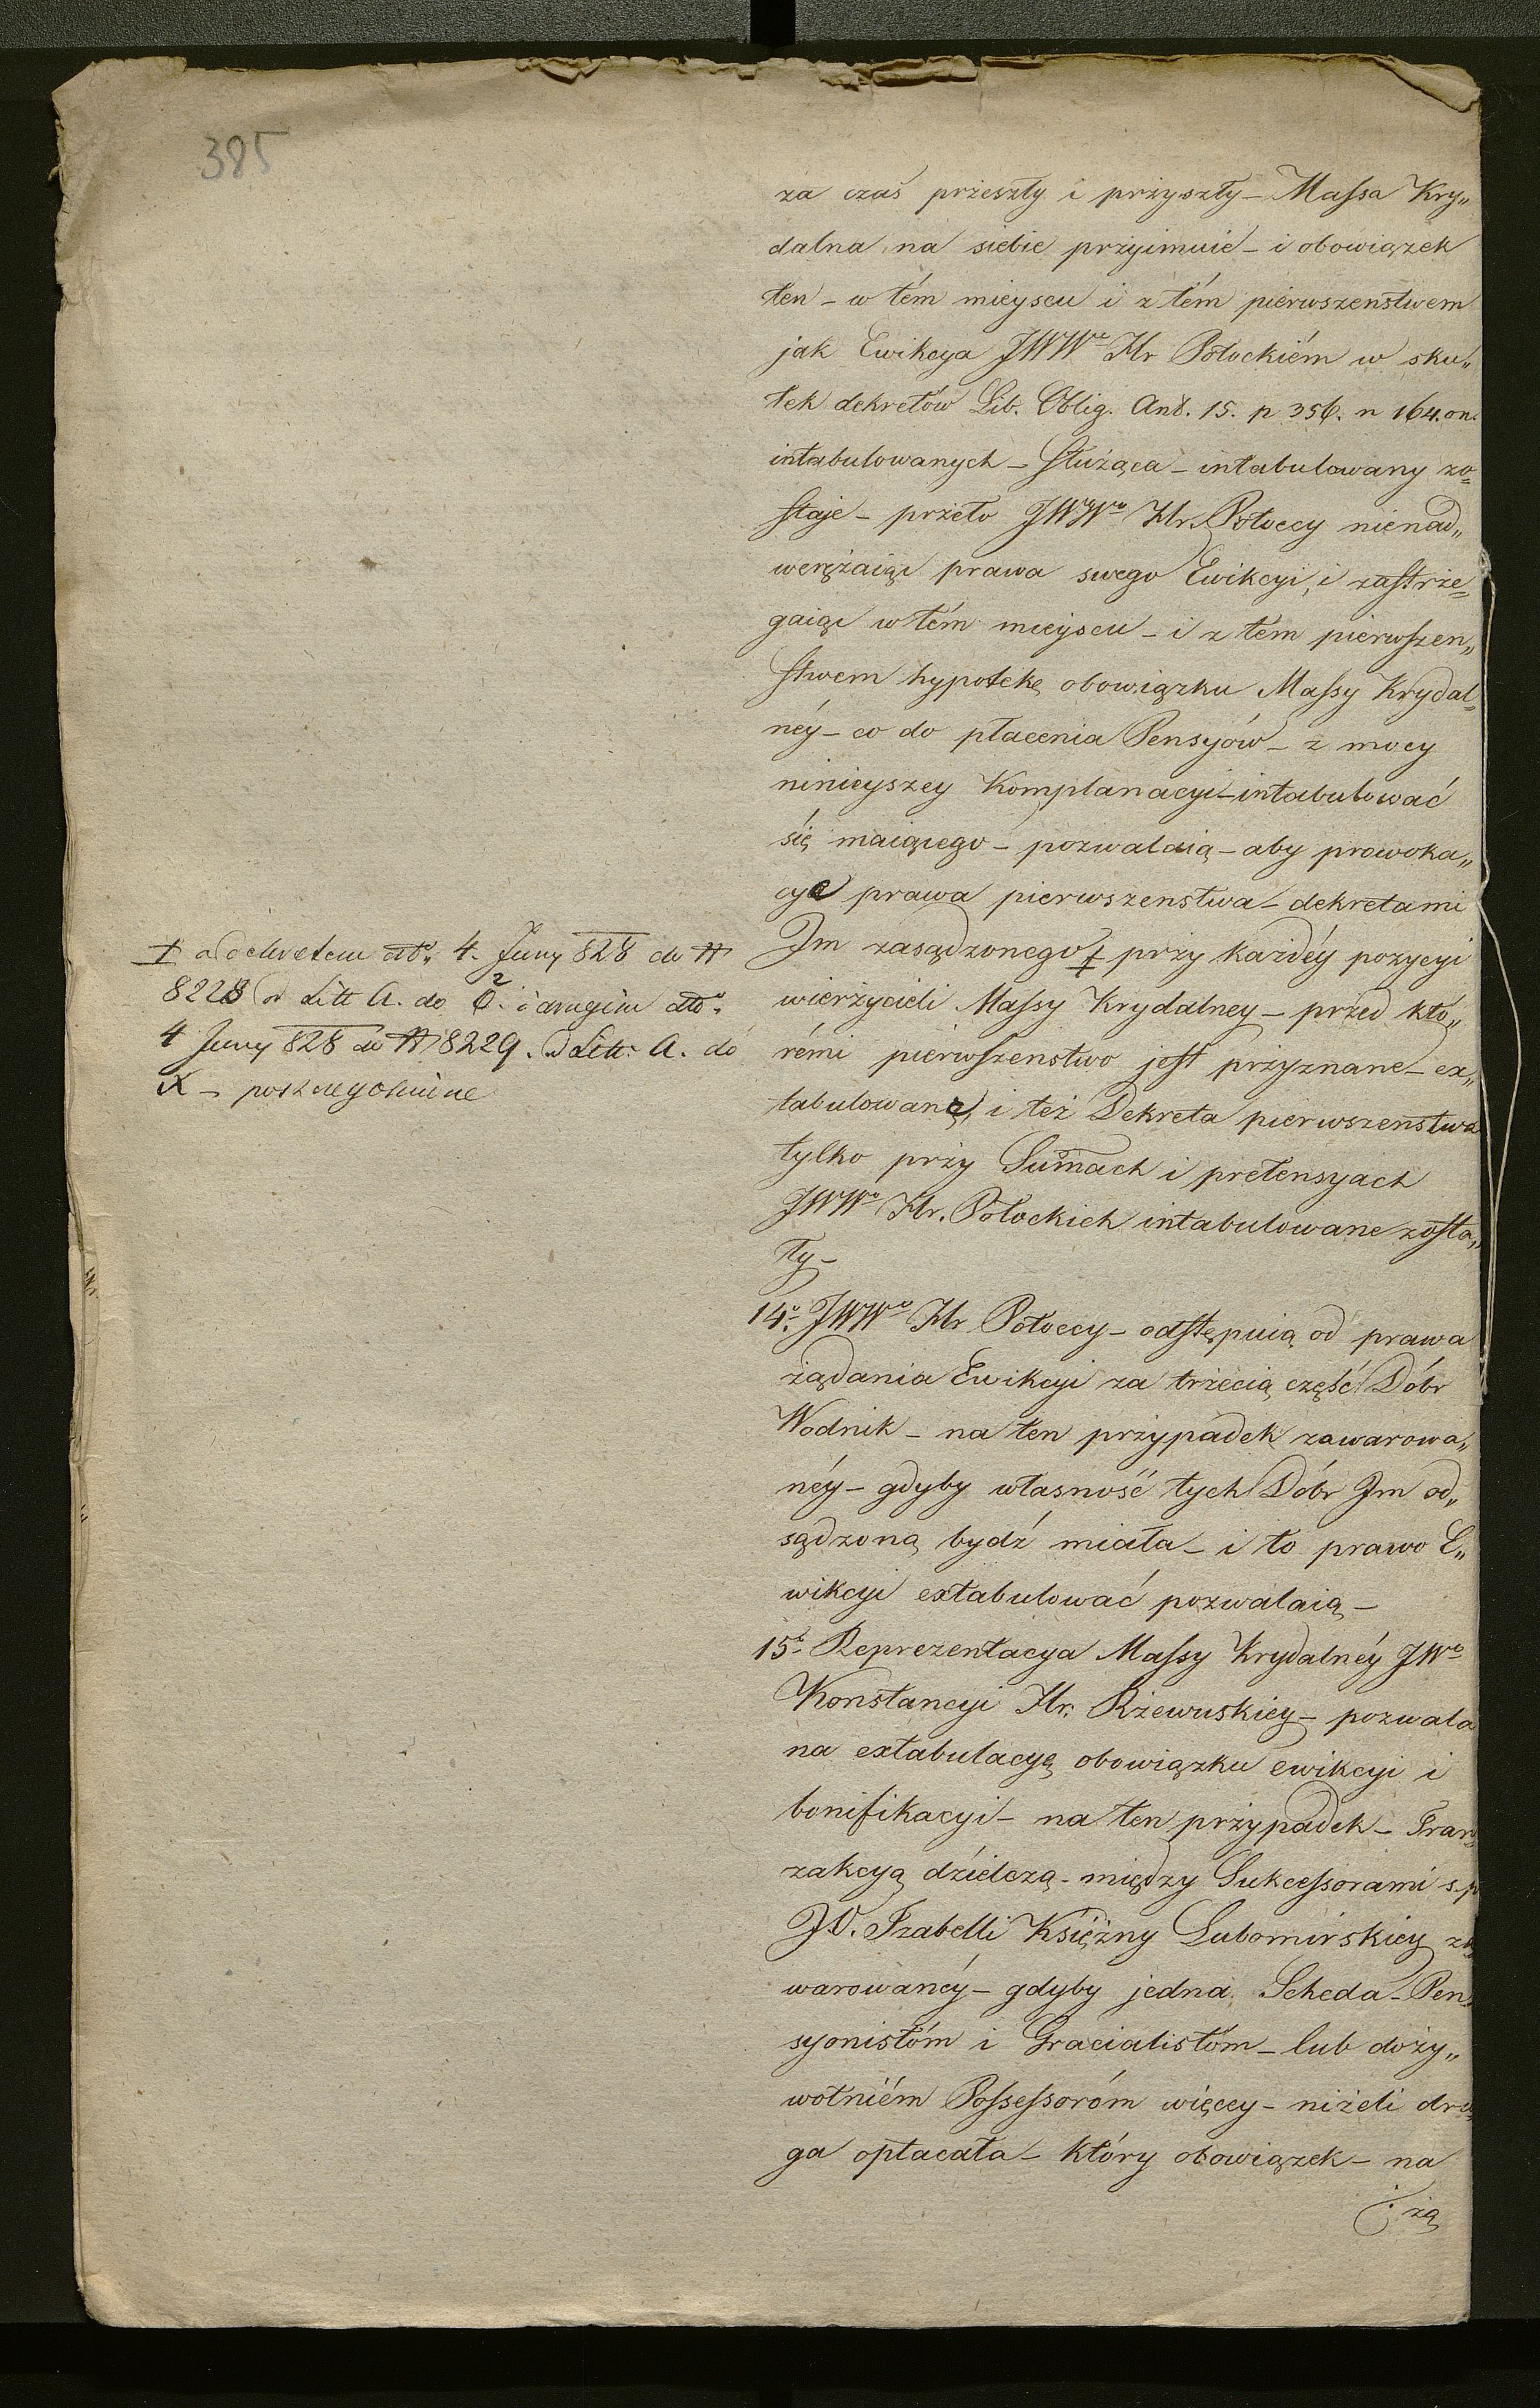 385
za czas przeszły i przyszły – Massa Kry„
dalna na siebie przyimuie – i obowiązek
ten – w tém mieyscu i z tém pierwszenstwem
jak Ewikcya JWW^o Hr Potockiém w sku„
tek dekretów Lib. Oblig. Ant. 15. p 356. n 164. on.
intabulowanych – służąca – intabulowany zo„
staje – przeto JWW^o Hr. Potoccy nienad„
werężaiąc prawa swego Ewikcyi, i zastrze„
gaiąc w tém mieyscu – i z tém pierwszen„
stwem hypotekę obowiązku Massy Krydal„
néy – co do płacenia Pensyów – z mocy
ninieyszey Komplanacyi – intabulować
się maiącego – pozwalaią – aby prowoka„
cye prawa pierwszenstwa – dekretami
Jm zasądzonego ‡ przy każdéy pozycyi
wierzycieli Massy Krydalney – przed któ„
rémi pierwszenstwo jest przyznane – ex„
tabulowane, i też Dekreta pierwszenstwa
tylko przy Sumach i pretensyach
JWW^o Hr. Potockich intabulowane zosta„
ły –
‡ dekretem dto. 4. Juny 828 do N
8228 od Litt A. do i drugim dto.
4 Juny 828 do N 8229. od Litt. A. do
X – poszczegolnione
14^o. JWW^o Hr Potoccy – odstępuią od prawa
żądania Ewikcyi za trzecią część Dóbr
Wodnik – na ten przypadek zawarowa„
néy – gdyby własność tych Dóbr Jm od„
sądzoną bydź miała – i to prawo E„
wikcyi extabulować pozwalaią –
15^o. Reprezentacya Massy Krydalnéy JW^o
Konstancyi Hr. Rzewuskiey – pozwala
na extabulacyę obowiązku ewikcyi i
bonifikacyi – na ten przypadek – Tran„
zakcyą dzielczą – między Sukcessorami s. p
JO. Izabelli Księżny Lubomirskiey za„
warowanéy – gdyby jedna Scheda – Pen„
syonistóm i Gracialistóm – lub doży„
wotniém Possessoróm więcey – niżeli dru„
ga opłacała – który obowiązek – na
żą